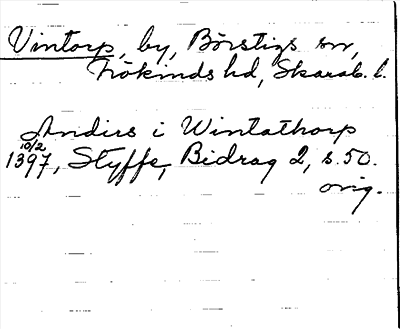 Vintorp, by, Börstigs sn,
Frökinds hd, Skarab. l.
Andirs i Wintathorp
10/2
1397, Styffe, Bidrag 2, s. 50.
orig.